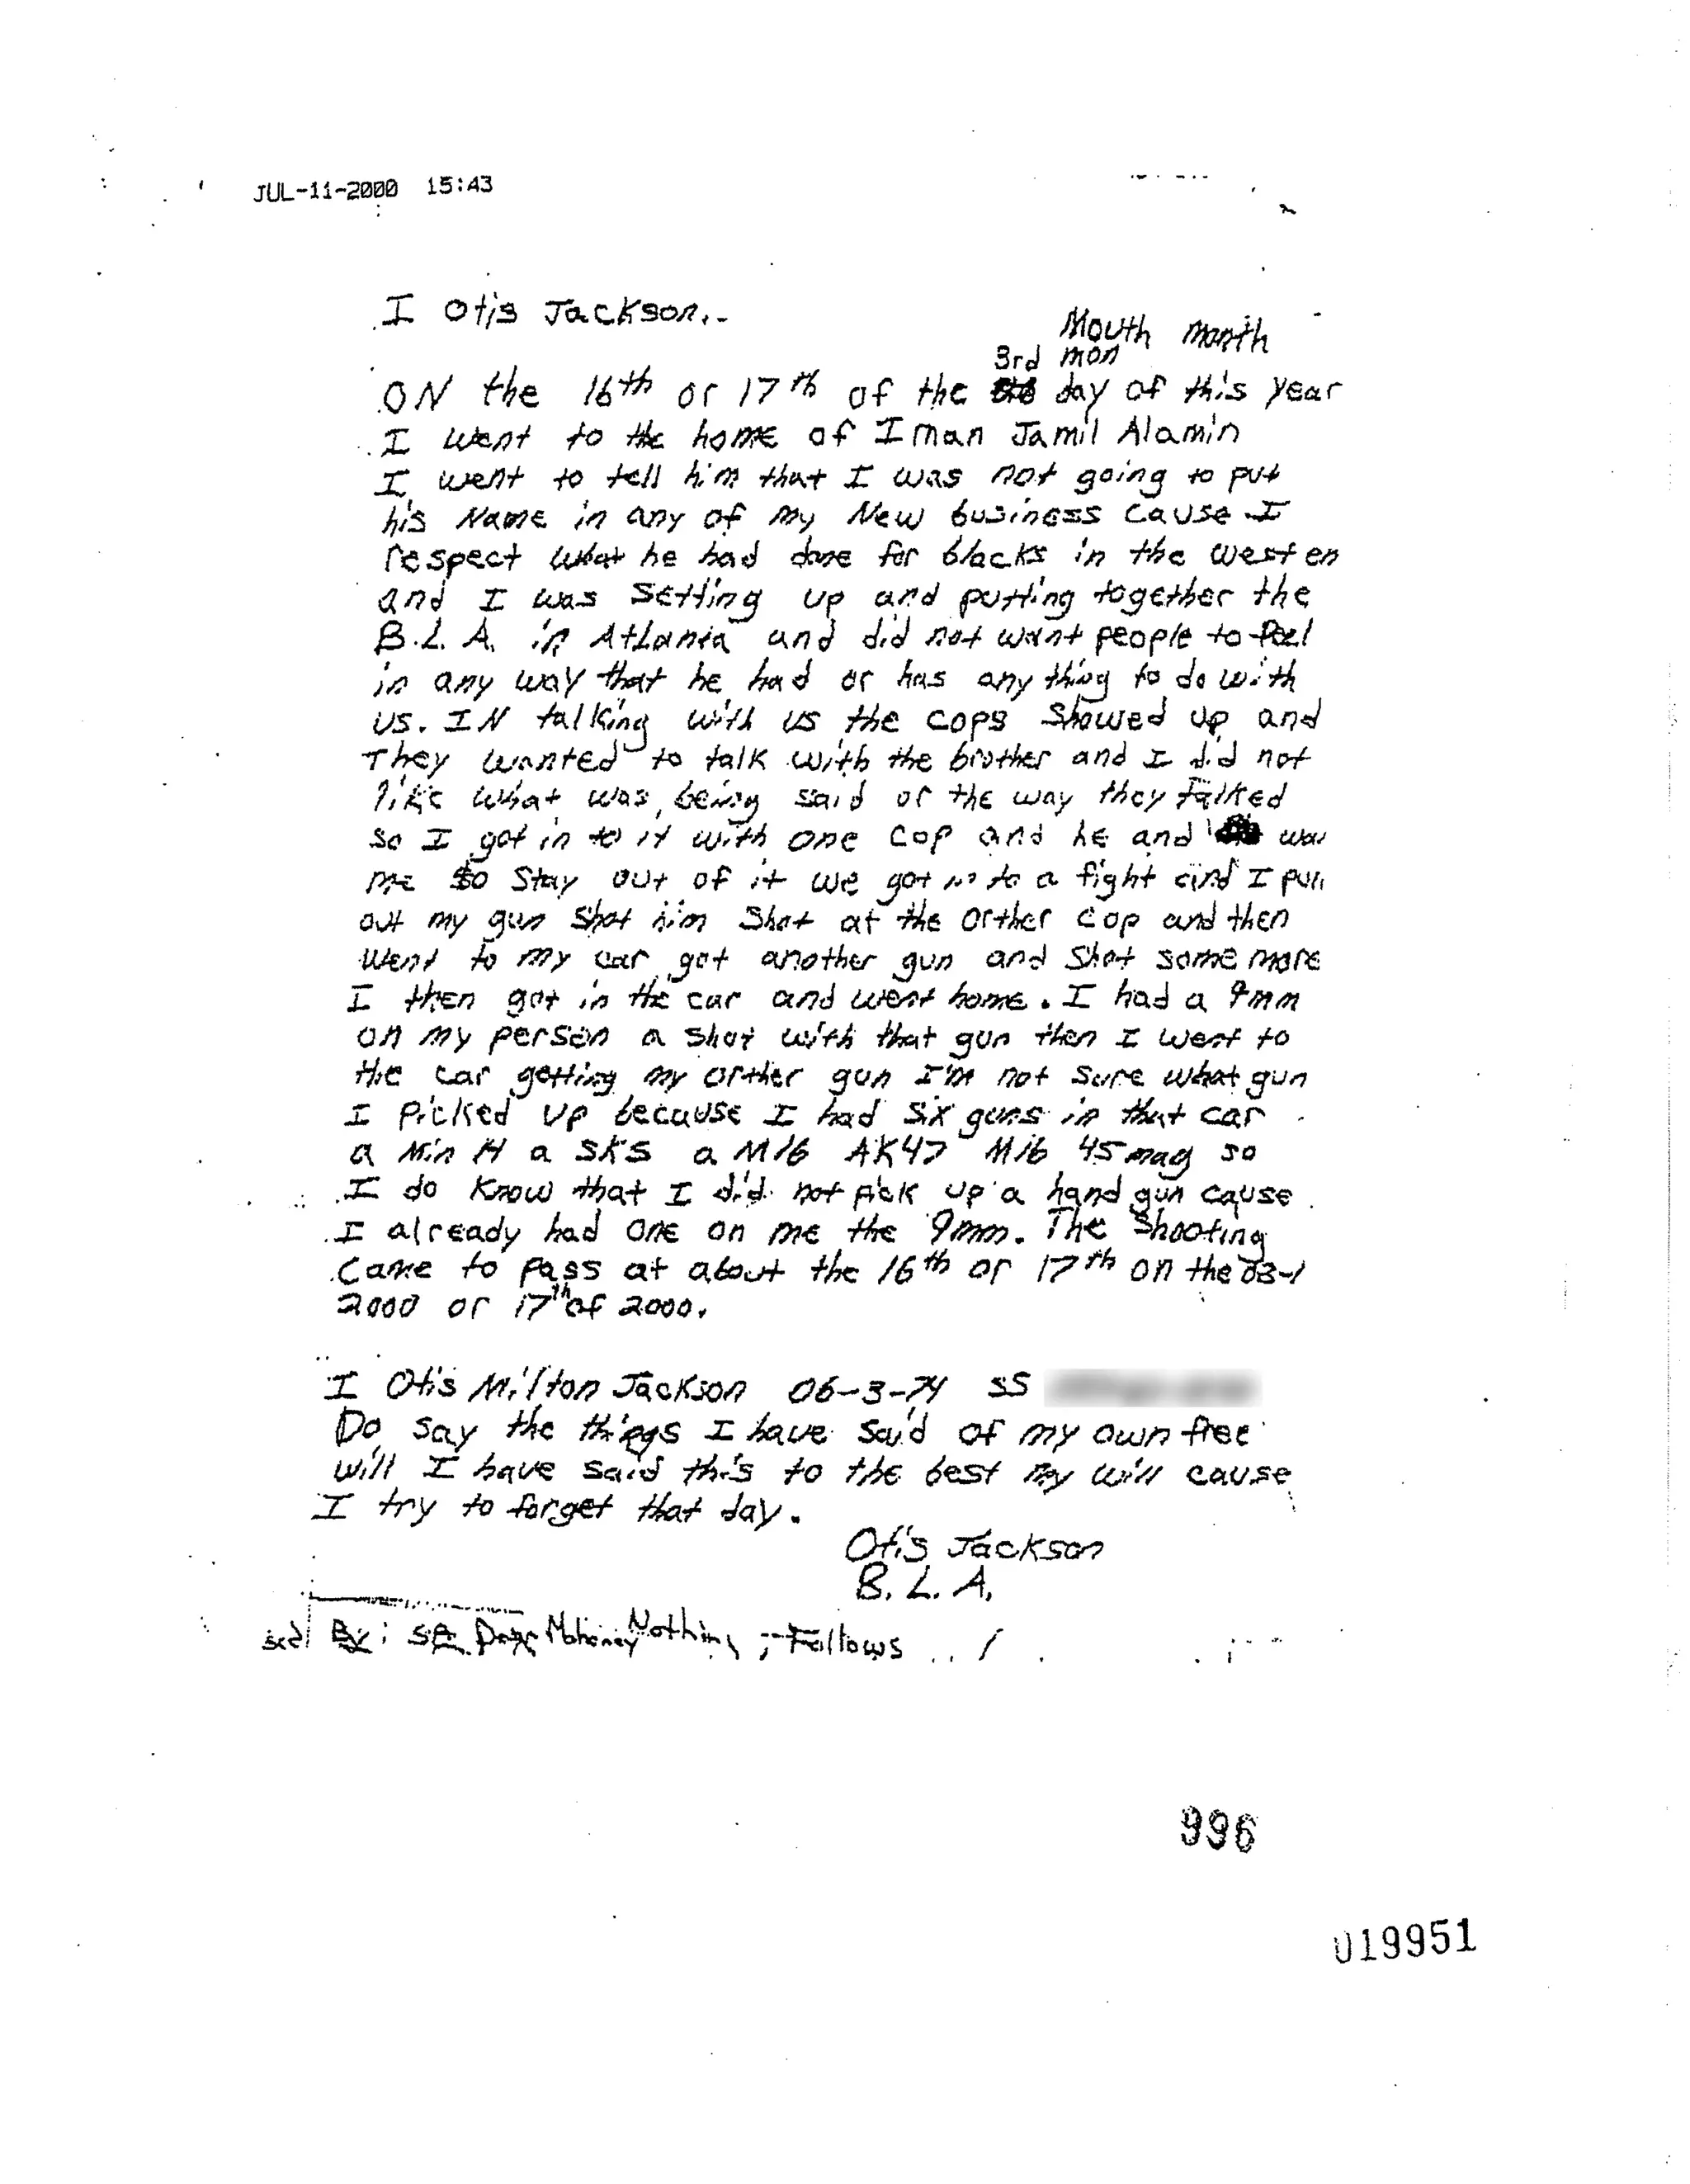 JUL-11-2000 15:43
I Otis Jackson.-
Mouth month
3rd mon
ON the 16th or 17th of the day of this year
I went to the home of Iman Jamil Alamin
I went to tell him that I was not going to put
his Name in any of my New business cause I
respect what he had done for blacks in the west en
and I was setting up and putting together the
B.L.A. in Atlanta and did not want people to feel
in any way that he had or has any thing to do with
us. IN talking with us the cops showed up and
They wanted to talk with the brother and I did not
like what was being said or the way they talked
So I got in to it with one cop and he and
me to stay out of it we got in to a fight and I pull
out my gun shot him shot at the orther cop and then
went to my car got another gun and shot some more
I then got in the car and went home. I had a 9mm
on my person a shot with that gun then I went to
the car getting my orther gun I'm not sure what gun
I picked up because I had six guns in that car
a Min 14 a SKS a M16 AK47 M16 45 mag so
I do know that I did not pick up a hand gun cause
I already had one on me the 9mm. The shooting
came to pass at about the 16th or 17th on the 03-1
2000 or 17th of 2000.
I Otis Milton Jackson 06-3-74 SS
Do say the things I have said of my own free
will I have said this to the best my will cause
I try to forget that day.
Otis Jackson
B.L.A.
By: SA Mahoney Nothing Follows
996
019951